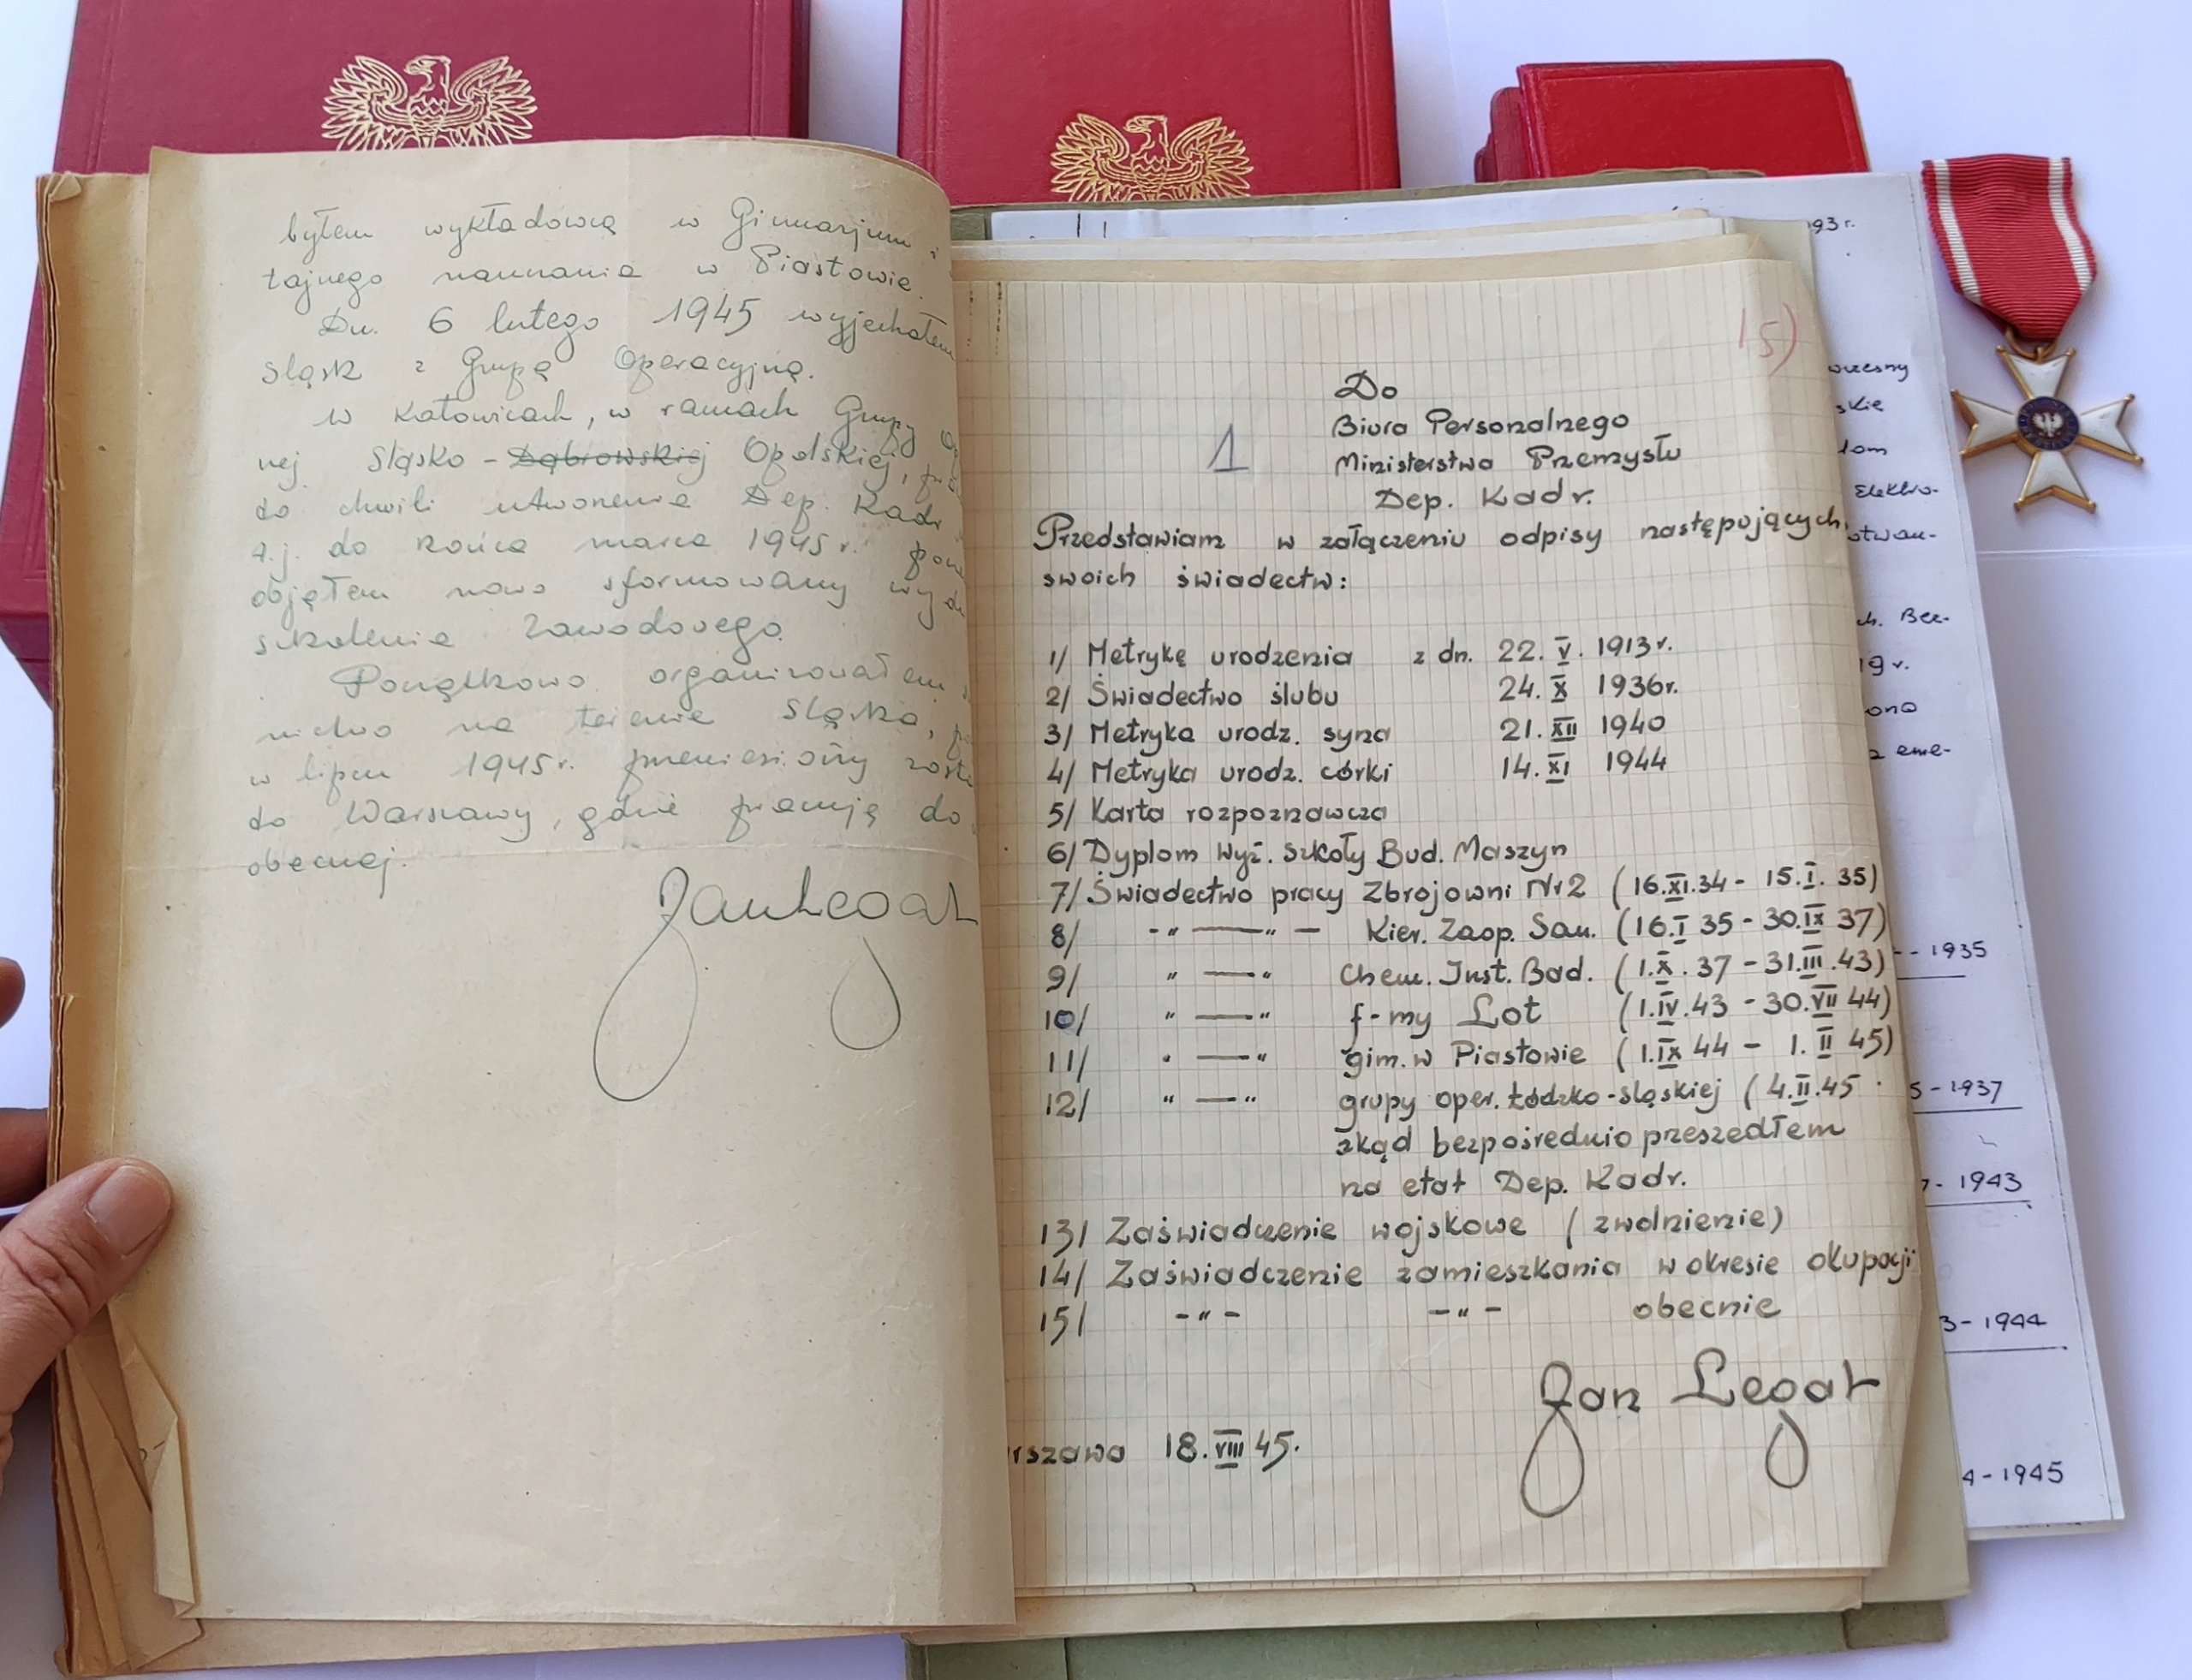 byłem wykładowcą w Gimnazjum i
tajnego nauczania w Piastowie.
Dn. 6 lutego 1945 wyjechałem
Śląsk z Grupą Operacyjną.
W Katowicach, w ramach Grupy
nej Śląsko - Dąbrowskiej Opolskiej,
do chwili utworzenia Dep. Kadr
t.j. do końca marca 1945 r.
objąłem nowo sformowany
szkolenia Zawodowego.
Początkowo organizowałem
nictwo na terenie Śląska,
w lipcu 1945 r. przeniesiony
do Warszawy, gdzie pracuję do
obecnej.
Jan Legat
15)
1
Do
Biura Personalnego
Ministerstwa Przemysłu
Dep. Kadr.
Przedstawiam w załączeniu odpisy następujących
swoich świadectw:
1/ Metrykę urodzenia z dn. 22. V. 1913 r.
2/ Świadectwo ślubu 24. X 1936 r.
3/ Metryka urodz. syna 21. XII 1940
4/ Metryka urodz. córki 14. XI 1944
5/ Karta rozpoznawcza
6/ Dyplom Wyż. Szkoły Bud. Maszyn
7/ Świadectwo pracy Zbrojowni Nr 2 (16.XI.34 - 15.I. 35)
8/ -"——"— Kier. Zaop. San. (16.I 35 - 30.IX 37)
9/ "——" Chem. Inst. Bad. (1.X. 37 - 31.III.43)
10/ "——" f-my Lot (1.IV.43 - 30.VII 44)
11/ "——" gim. w Piastowie (1.IX 44 - 1. II 45)
12/ "——" grupy oper. Łódzko-śląskiej (4.II.45
skąd bezpośrednio przeszedłem
na etat Dep. Kadr.
13/ Zaświadczenie wojskowe (zwolnienie)
14/ Zaświadczenie zamieszkania w okresie okupacji
15/ -"- -"- obecnie
Jan Legat
rszawa 18.VIII 45.
93 r.
skie
Elektro-
19 r.
z eme-
- 1935
5 - 1937
- 1943
3 - 1944
4 - 1945